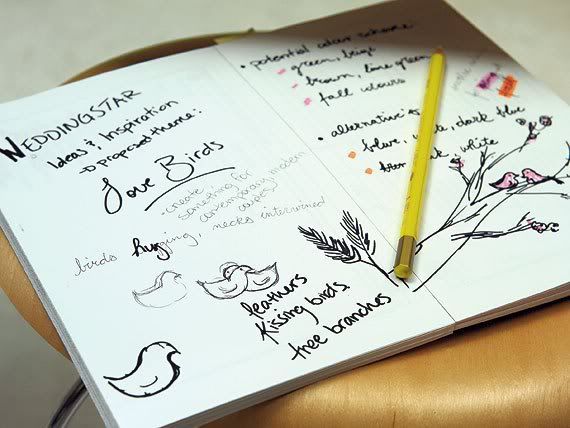 WEDDINGSTAR
Ideas & Inspiration
→ proposed theme:
Love Birds
- create
something for
contemporary modern
couples
birds hugging, necks intertwined
feathers
kissing birds
tree branches
• potential color scheme:
green, beige
brown, lime green
fall colours
• alternative
blue, dark blue
white